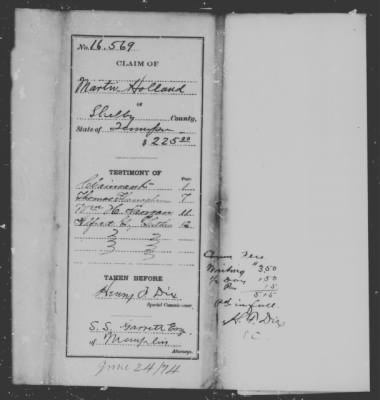 No. 16,569
CLAIM OF
Martin Holland
OF
Shelby County,
State of Tennessee
$225.00
TESTIMONY OF
Page
Claimant 1
Thomas 7
Wm H. 11
Alfred
TAKEN BEFORE
Henry P. Dix
Special Commissioner.
S. S. Garrett Esq
of Memphis
Attorney.
June 24/74
Com Fees
Writing $3.50
1/2 Day 1.50
Po 15
5.15
Pd in full.
H. P. Dix
S C